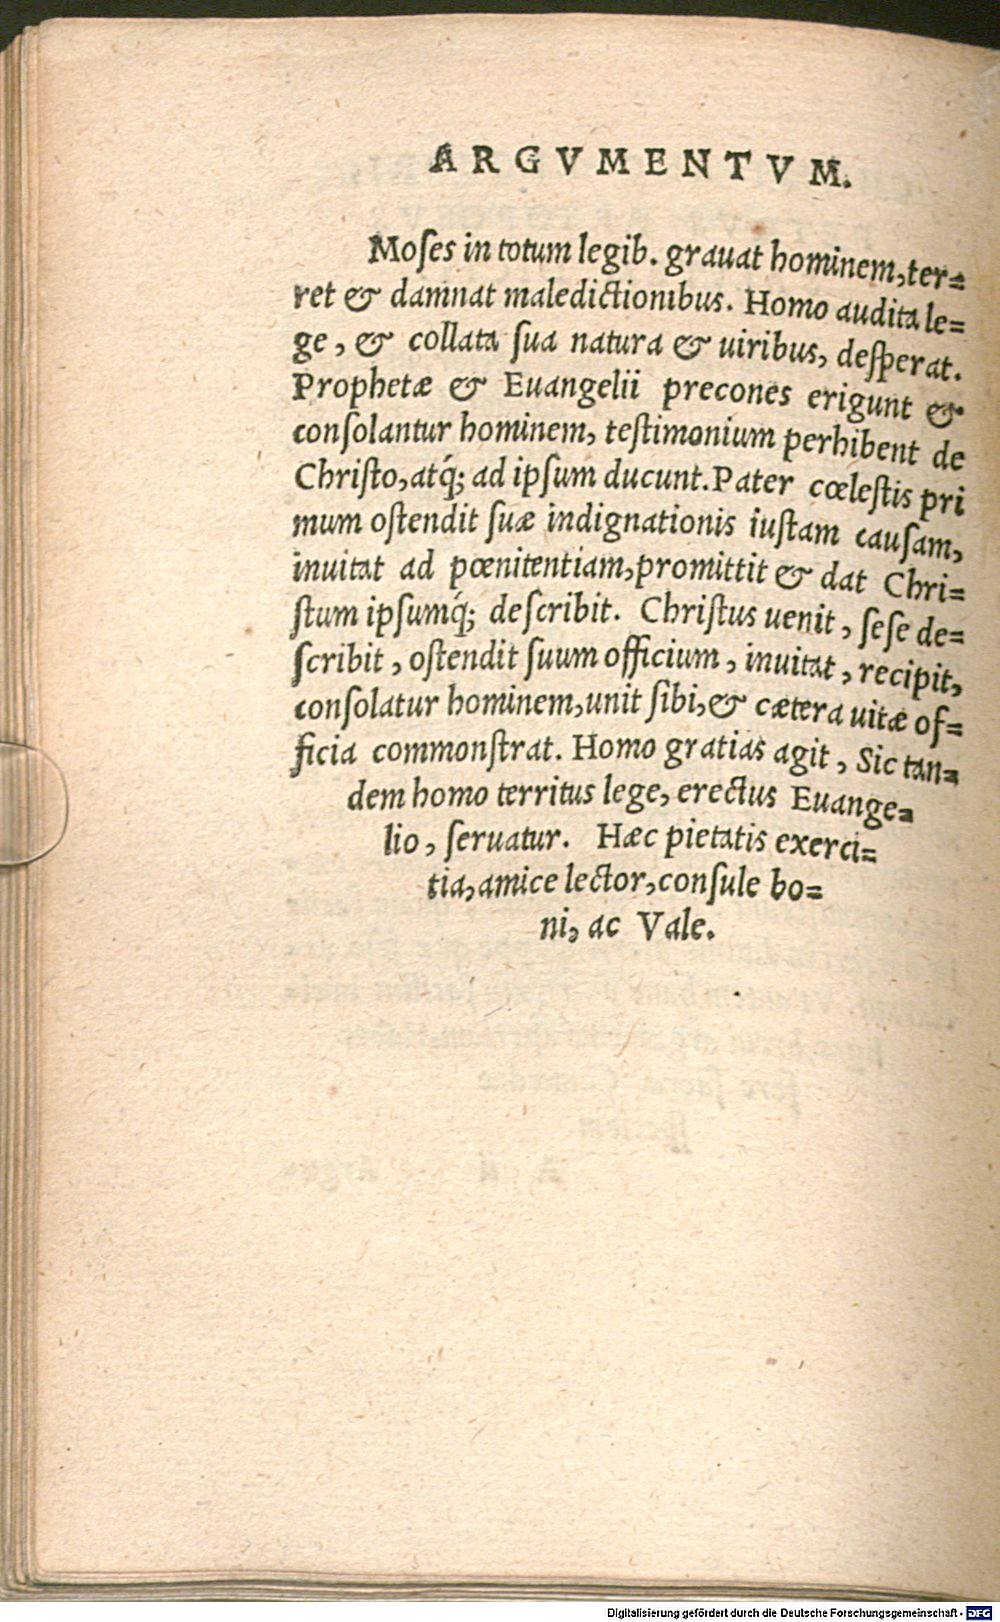 ARGVMENTVM.
Moſes in totum legib. grauat hominem, ter=
ret & damnat maledictionibus. Homo audita le=
ge, & collata ſua natura & uiribus, deſperat.
Prophetæ & Euangelii precones erigunt &
conſolantur hominem, teſtimonium perhibent de
Chriſto, atq́; ad ipſum ducunt. Pater cœleſtis pri
mum oſtendit ſuæ indignationis iuſtam cauſam,
inuitat ad pœnitentiam, promittit & dat Chri=
ſtum ipſumq́; deſcribit. Chriſtus uenit, ſeſe de=
ſcribit, oſtendit ſuum officium, inuitat, recipit,
conſolatur hominem, unit ſibi, & cætera uitæ of=
ficia commonſtrat. Homo gratias agit, Sic tan=
dem homo territus lege, erectus Euange=
lio, ſeruatur. Hæc pietatis exerci=
tia, amice lector, conſule bo=
ni, ac Vale.
Digitalisierung gefördert durch die Deutsche Forschungsgemeinschaft - DFG